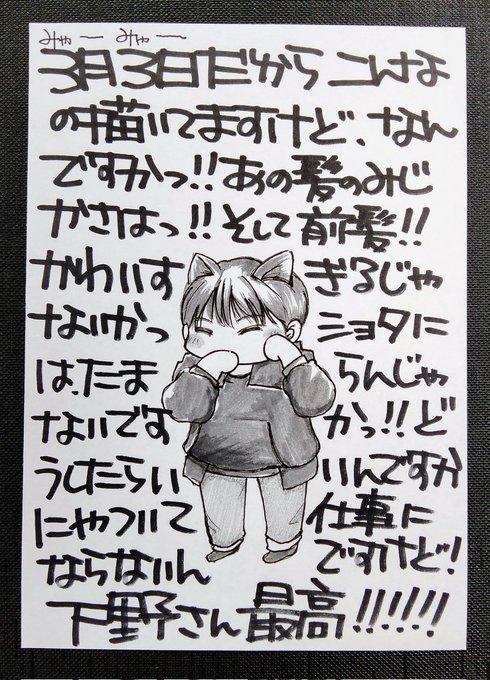 みゃー みゃー
3月3日だから こんなよ
の描いてますけど、なん
ですかっ!! あの髪のみじ
かさはっ!! そして前髪!!
かわいす ぎるじゃ
ないかっ ショタに
は、たま らんじゃ
ないです かっ!! ど
うしたらい いんですか
にやついて 仕事に
ならないん ですけど!
下野さん 最高!!!!!!